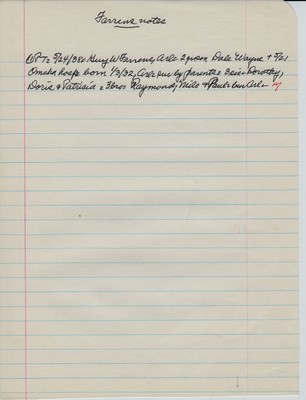 Farrens notes
OPT: 9/24/38: Guy W Farrens, Arlo 2 yr son Dale Wayne + 9/21
Omaha hosp born 1/3/32, Arlo sur by parents 3 sis: Dorothy,
Doris & Patricia & 3 bros Raymond, Milo & Paul: bur Arlo